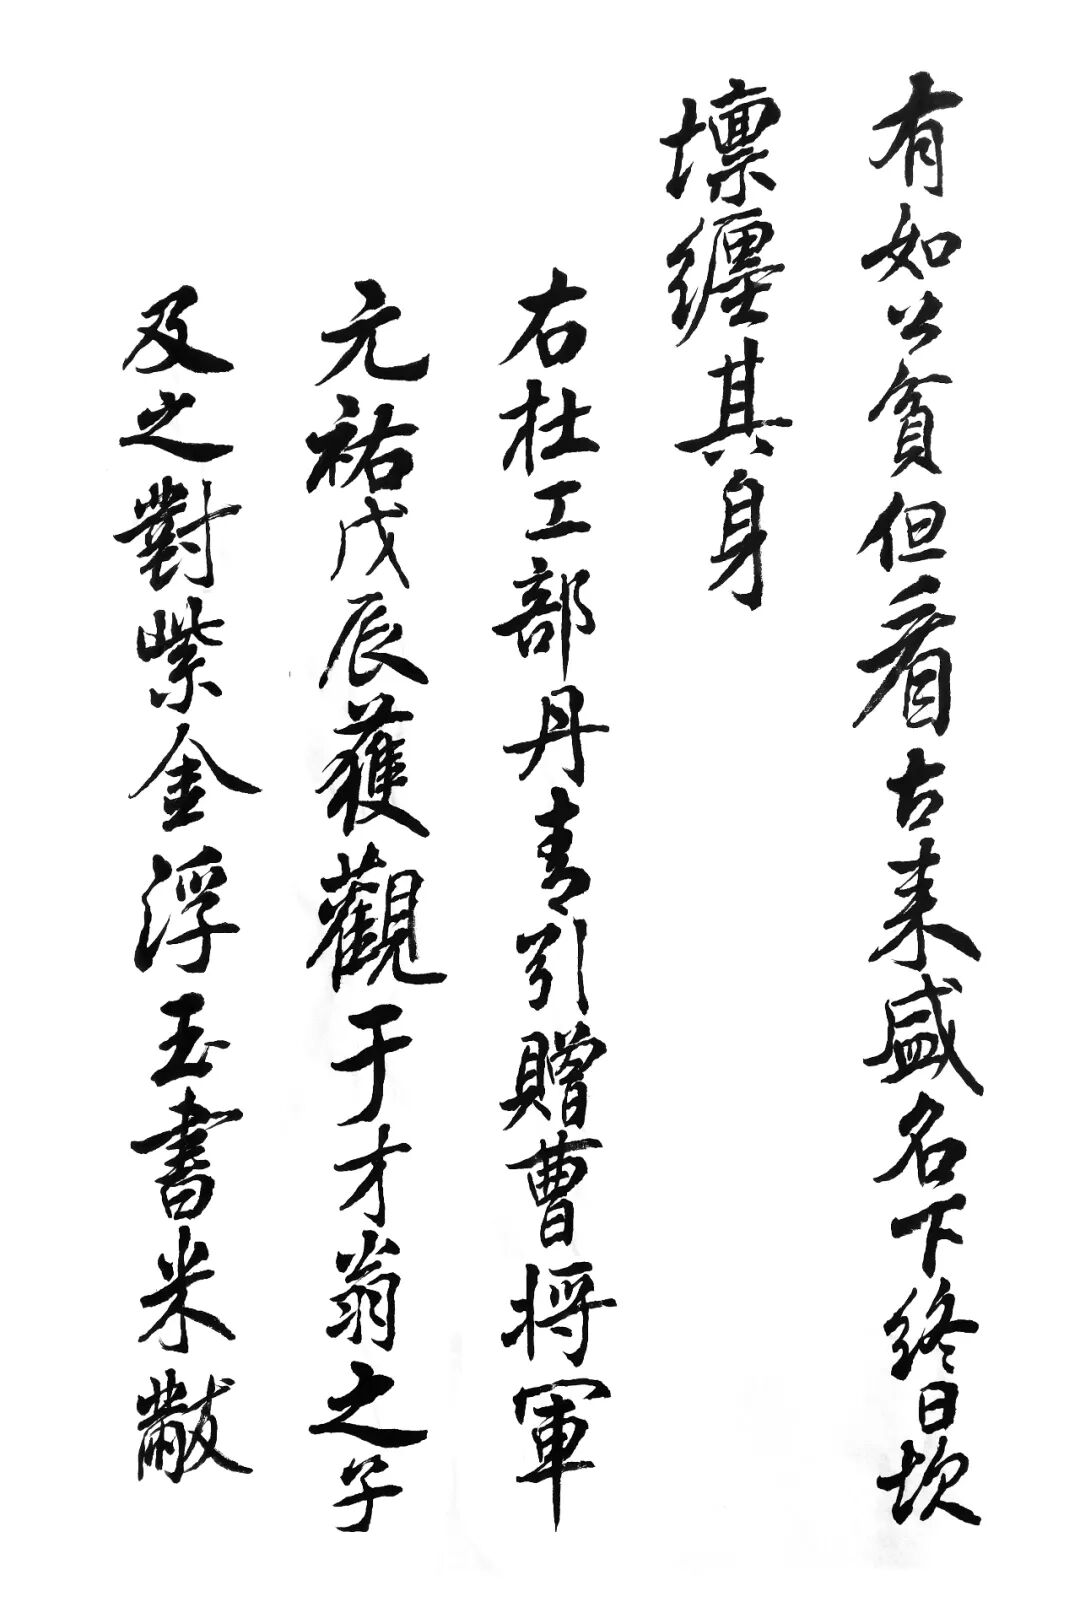 有如公貧但看古来盛名下終日坎
壈纏其身
右杜工部丹青引贈曹将軍
元祐戊辰獲觀于才翁之子
及之對紫金浮玉書米黻